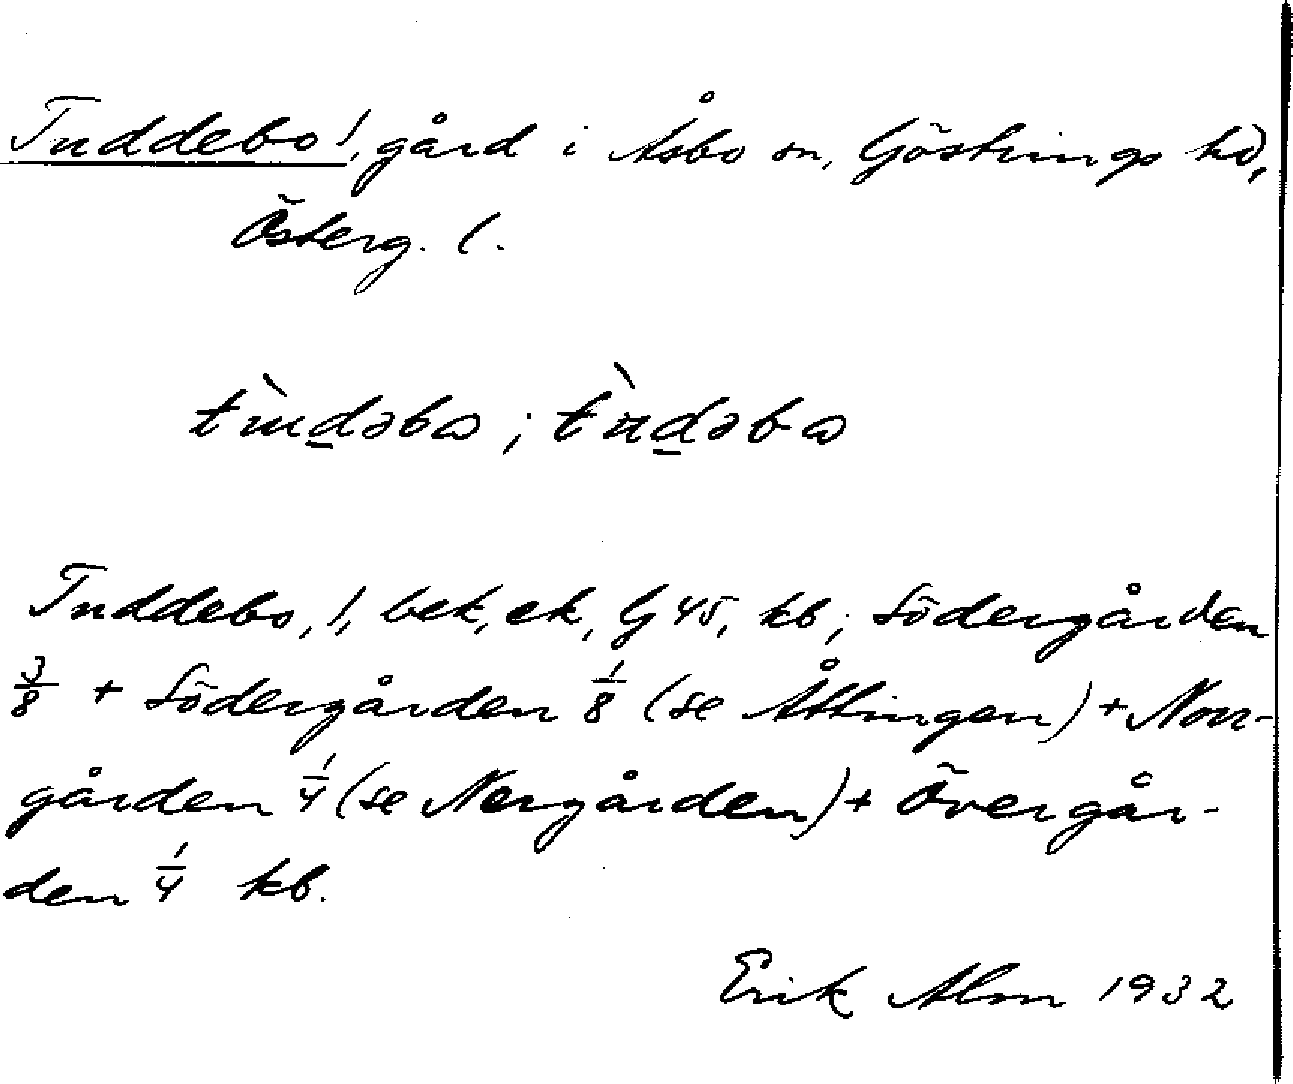 Tuddebo!, gård i Åsbo sn, Göstrings hd,
Österg. l.
Tuddebo, !, bek, ek, G 45, kb; Södergården
3/8 + Södergården 1/8 (se Åttingen) + Norr-
gården 1/4 (se Nergården) + Övergår-
den 1/4 kb.
Erik Alm 1932